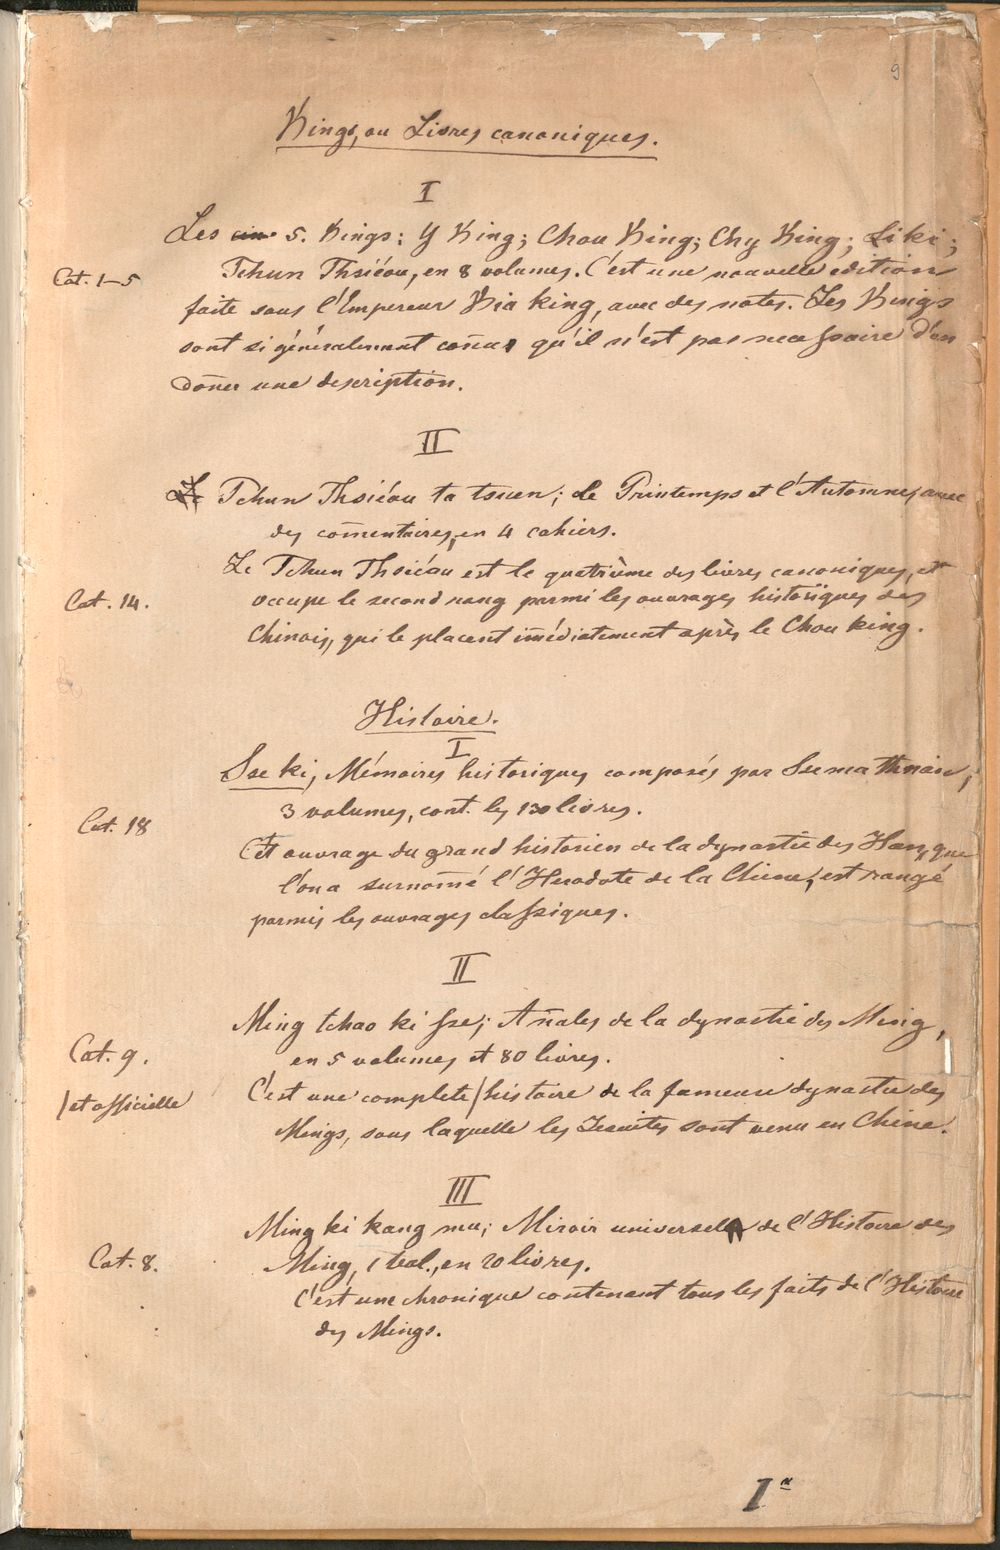 9
Kings, ou Livres canoniques.
I
Les cin 5. Kings: Y King; Chou King; Chy King; Li ki;
Cat. 1-5
Tchun Thsiéou, en 8 volumes. C'est une nouvelle edition
faite sous l'Empereur Kia king, avec des notes. Les Kings
sont si généralement con̄us qu'il n'est pas necessaire d'en
don̄er une description.
II
Tchun Thsiéou ta tsuen; de Printemps et l'Automne, avec
des com̄entaires, en 4 cahiers.
Le Tchun Thsiéou est le quatrième des livres canoniques, et
Cat. 14.
occupe le second rang parmi les ouvrages historiques des
Chinois, qui le placent im̄édiatement après le Chou king.
Histoire.
I
Sse ki, Mémoires historiques composés par Ssema
3 volumes, cont. les 130 livres.
Cat. 18
Cet ouvrage du grand historien de la dynastie des Han, que
l'on a surnom̄é l'Herodote de la Chine, est rangé
parmis les ouvrages classiques.
II
Ming tchao ki sse; An̄ales de la dynastie des Ming,
en 5 volumes et 80 livres.
Cat. 9.
C'est une complete / histoire de la fameuse dynastie des
/ et officielle
Mings, sous laquelle les Jesuites sont venu en Chine.
III
Ming ki kang mu; Miroir universel de l'Histoire des
Cat. 8.
Ming, 1 vol., en 20 livres.
C'est une chronique contenant tous les faits de l'Histoire
des Mings.
1a